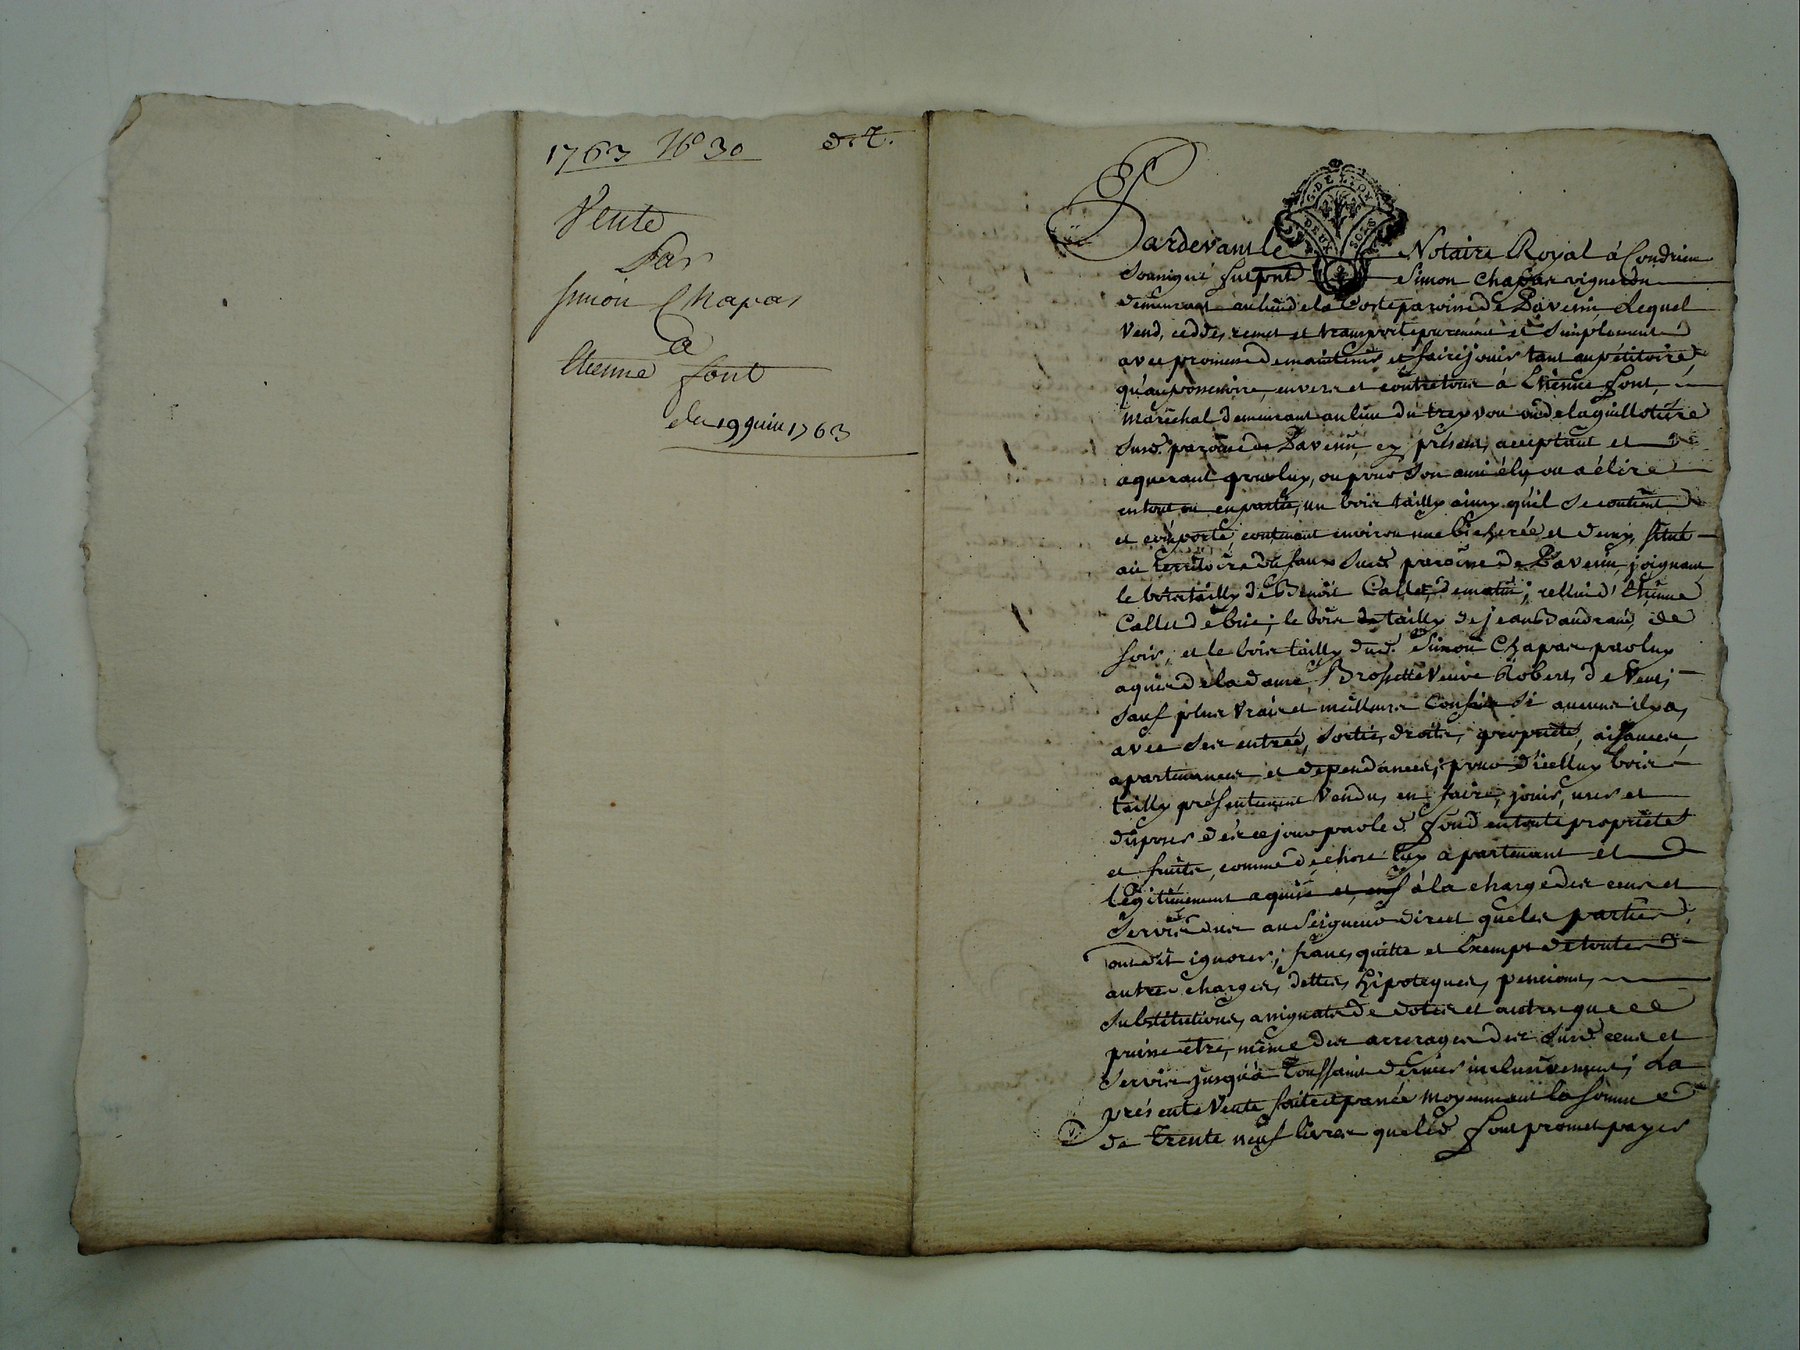 1763 No 30
Vente
Par
Simon Chapas
a
Etienne font
du 19 juin 1763
G. DE LYON
DEUX SOLS
Pardevant le Notaire Royal à Condrieu
Soussigné fut present Simon Chapas vigneron
demeurant au lieu de la Coste paroisse de Pavesin Lequel
Vend, cedde, remet et transporte purement et Simplement
avec promesse de maintenir et faire jouir tant au pétitoire
qu'au possessoire, envers et contre tous à Etienne font,
Maréchal demeurant au lieu du treyvou de la guillotiere
Susd. paroisse de Pavesin, cy présent, acceptant et
aquerant pour luy, ou pour Son ami élu ou a élire
en tout ou en partie, un bois tailly ainsy qu'il Se contient
et comporte contenant environ une bicherée et demy, Situé
au territoire du faux Susd. paroisse de Pavesin, joignant
le bois tailly de Benoit Callet, de matin; celluid' Etienne
Callet de bise; le bois de tailly de jean Baudrand, de
Soir, et le bois tailly dud. Simon Chapas par luy
aquis de la dame Brossette Veuve Robert, de Vent;
Sauf plus vrais et meilleurs Confins Si aucuns il y a,
avec Ses entrée, Sortie, droits, proprieté, aisances,
apartenances et dependances; pour d'icelluy bois
tailly présentement Vendu, en faire, jouir, user et
disposer dès ce jour par led. font en toute proprieté
et fruits, comme de chose luy apartenant et
légitimement aquise et, à la charge des cens et
Servis dus au Seigneur direct que les parties
ont dit ignorer; franc, quitte et Exempt de toutes
autres charges, dettes, hipoteques, pencions,
Substitutions, assignats de dotes et autres que ce
puisse être, même des arrerages des Susd. cens et
Servis jusqu'à Toussaint dernier inclusivement; La
présente Vente faite et passée moyennant la Somme
de Trente neuf livres que led. font promet payer